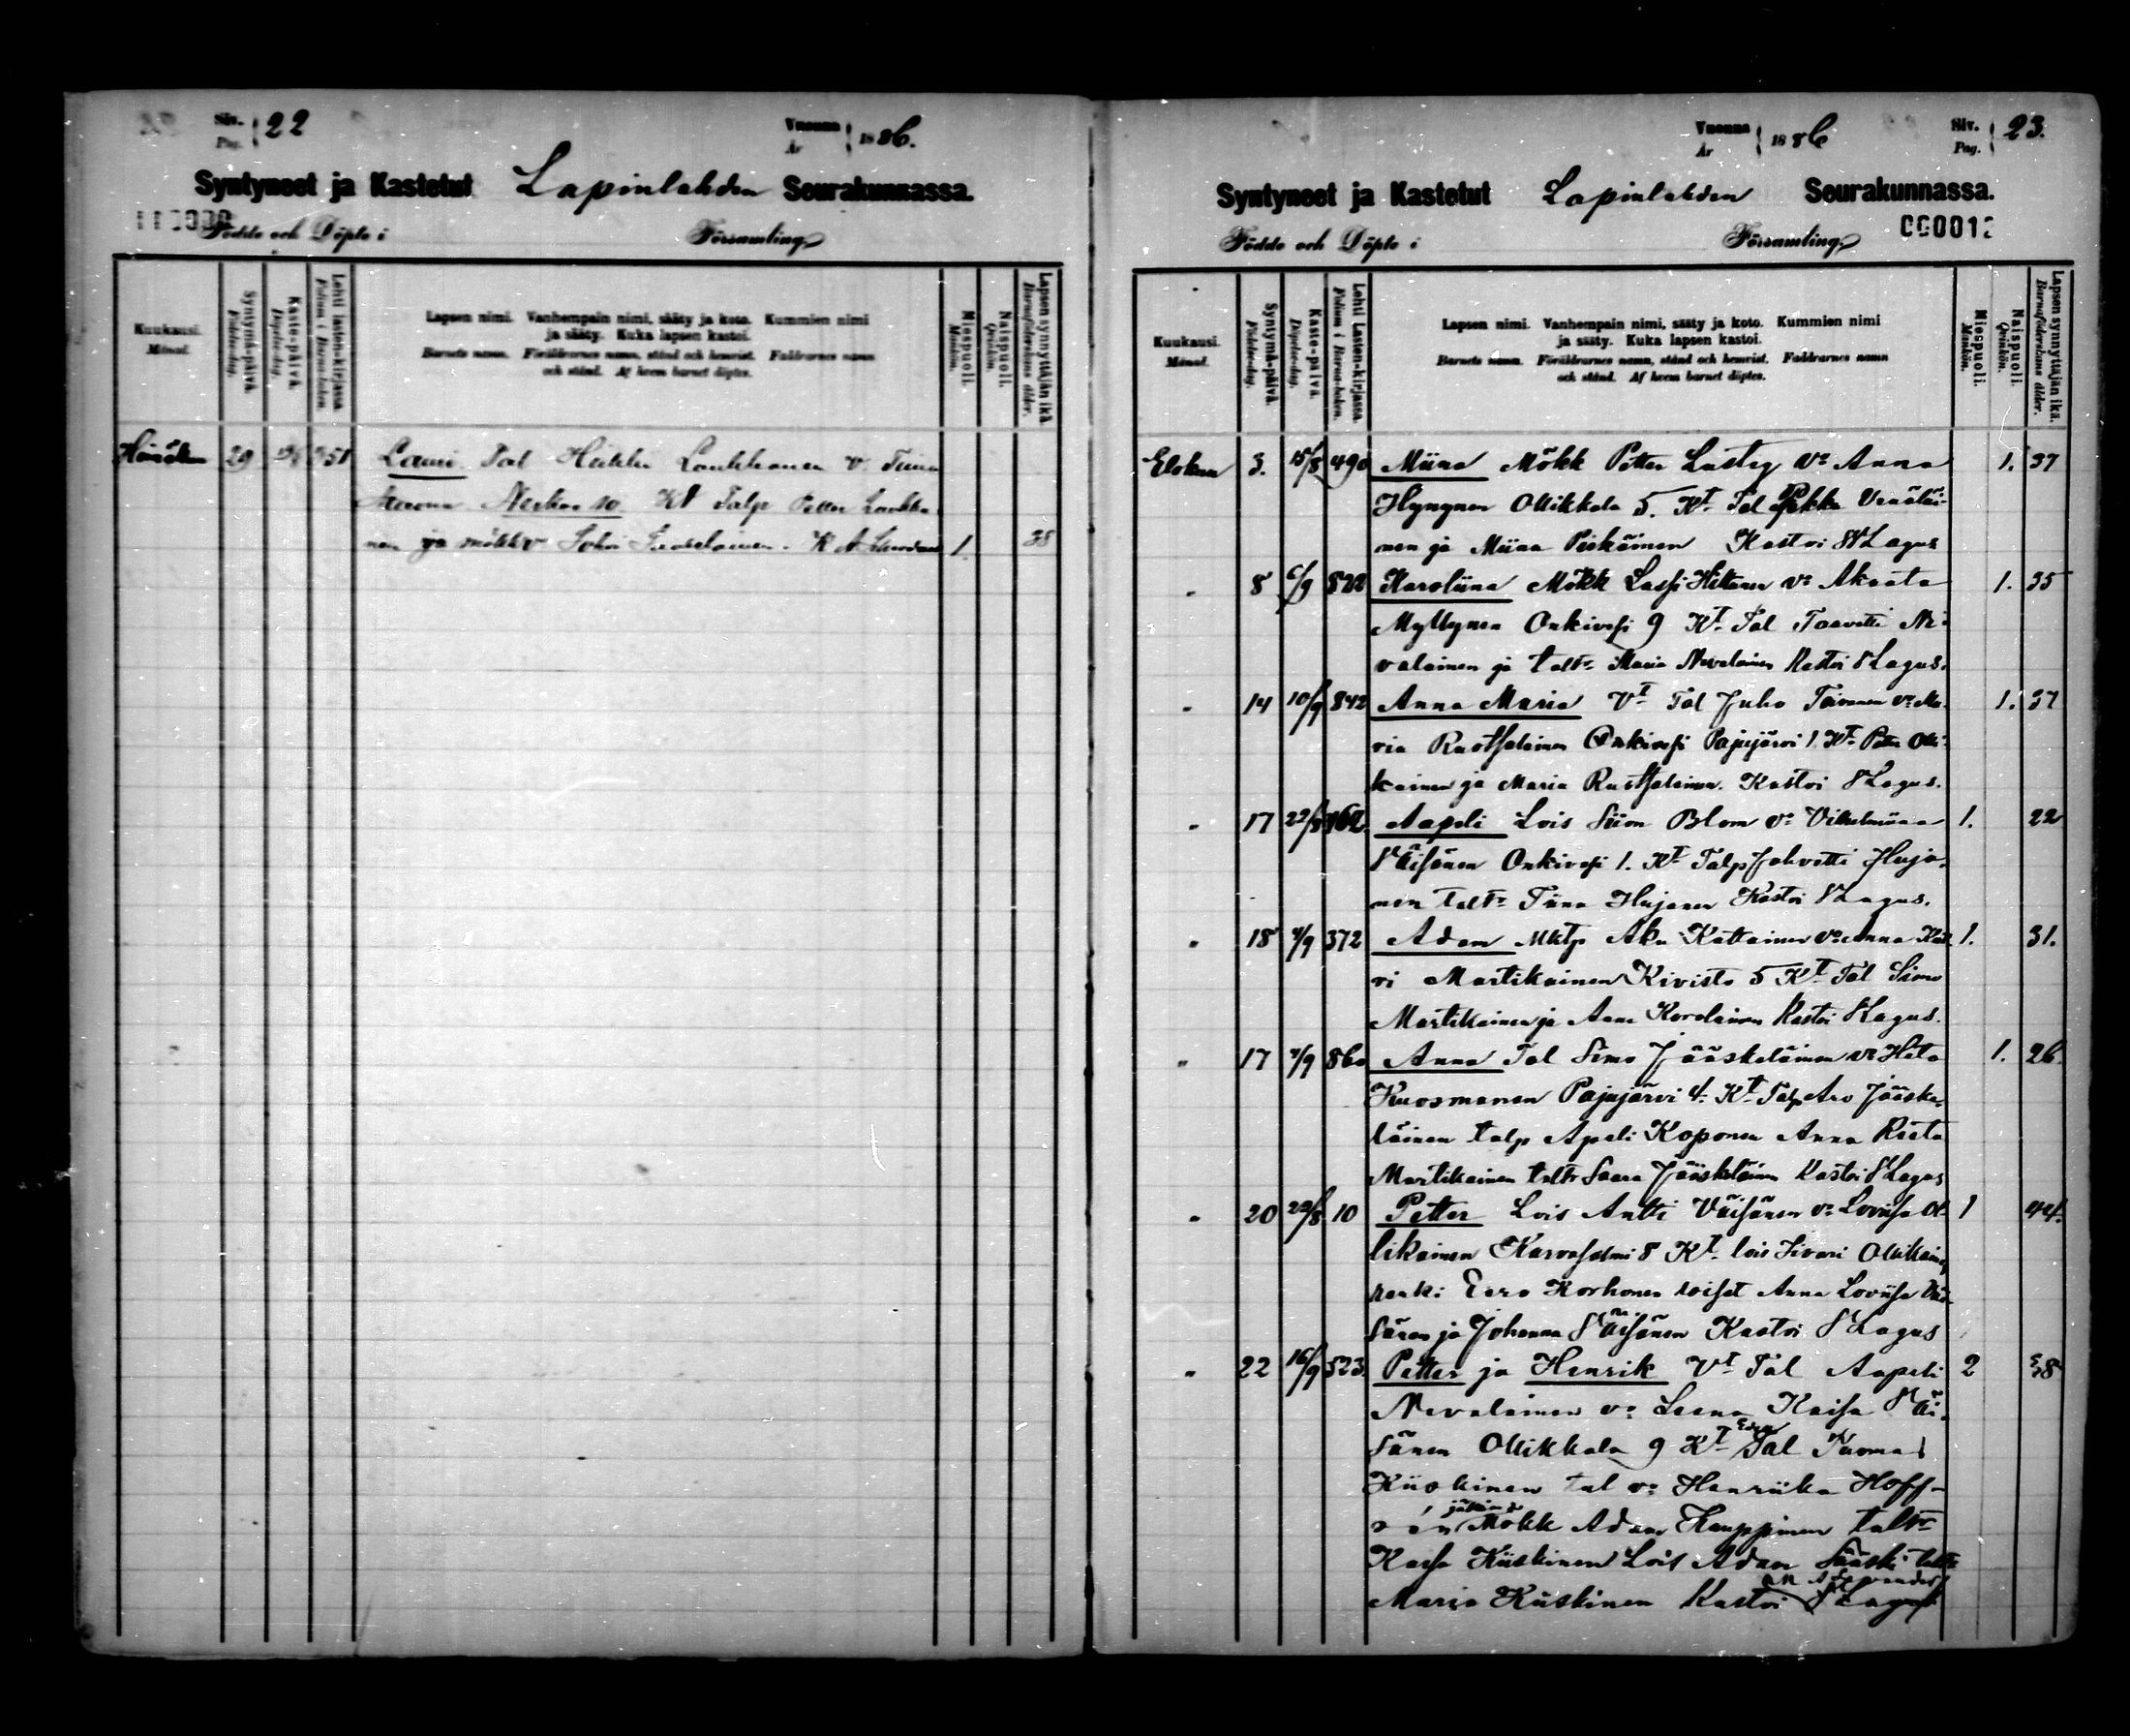 Siv. Pag. 22
Vuonna År 1886.
Syntyneet ja Kastetut Lapinlahden Seurakunnassa.
Födde och Döpte i Församling
Kuukausi. Månad.
Syntymä-päivä. Födelse-dag.
Kaste-päivä. Döpelse-dag.
Lehti lasten-kirjassa. Folium i Barna-boken.
Lapsen nimi. Vanhempain nimi, sääty ja koto. Kummien nimi
ja sääty. Kuka lapsen kastoi.
Barnets namn. Föräldrarnes namn, stånd och hemvist. Faddrarnes namn
och stånd. Af hvem barnet döptes.
Miespuoli. Mankön.
Naispuoli. Qvinkön.
Lapsen synnyttäjän ikä. Barnaföderskans ålder.
Heinäkuu 29 Lauri Tal Heikki Laukkanen v. Tiina
Kt Talp Petter Laukka-
nen ja mökkv 1. 38
Vuonna År 1886
Siv. Pag. 23.
Syntyneet ja Kastetut Lapinlahden Seurakunnassa.
Födde och Döpte i Församling 000012
Kuukausi. Månad.
Syntymä-päivä. Födelse-dag.
Kaste-päivä. Döpelse-dag.
Lehti lasten-kirjassa. Folium i Barna-boken.
Lapsen nimi. Vanhempain nimi, sääty ja koto. Kummien nimi
ja sääty. Kuka lapsen kastoi.
Barnets namn. Föräldrarnes namn, stånd och hemvist. Faddrarnes namn
och stånd. Af hvem barnet döptes.
Miespuoli. Mankön.
Naispuoli. Qvinkön.
Lapsen synnyttäjän ikä. Barnaföderskans ålder.
Elokuu 3. 15/8 490 Miina Mökk Petter Lustig vo Anna 1. 37
Hynynen Ollikkala 5. Kt Tal Pekka
nen ja Miina Kastoi Lagus
" 8 6/9 822 Karoliina Mökk Lassi vo Akaata 1. 35
Myllynen Onkivesi 9 Kt Tal Taavetti Ne-
valainen ja taltr Maria Nevalainen Kastoi Lagus.
" 14 10/9 842 Anna Maria Vt Tal Juho Toivanen vo Ma- 1. 37
ria Ruotsalainen Onkivesi Pajujärvi 1. Kt Petter Olli-
kainen ja Maria Ruotsalainen. Kastoi Lagus.
" 17 22/8 Aapeli Lois Siim Blom vo Vilhelmiina 1. 22
Väisänen Onkivesi 1. Kt Talp Jahvetti Huja-
nen taltr Tiina Hujanen Kastoi Lagus.
" 18 372 Adam Mktp Aku Kattainen vo Anna 1. 31.
ri Martikainen Kivisto 5 Kt Tal Simo
Martikainen ja Anna Kastoi Lagus.
" 17 860 Anna Tal Simo Jääskeläinen vo Heta 1. 26.
Kuosmanen Pajujärvi 4. Kt Talp Aro Jääske-
läinen talp Apeli Koponen Anna Rieta
Martikainen taltr Saara Jääskeläinen Kastoi Lagus
" 20 22/8 10 Petter Lois Antti Väisänen vo Loviisa Ol- 1 44.
likainen Karvasalmi 8 Kt lois Iivari Ollikainen
renki Eero Korhonen loiset Anna Loviisa Väi-
sänen ja Johanna Väisänen Kastoi Lagus
" 22 16/9 523. Petter ja Henrik Vt Tal Aapeli 2 38
Nevalainen vo Leena Kaisa Väi-
sänen Ollikkala 9 Kt Tal Tuomas
Kiiskinen tal vo Henriika Hoff-
Mökk Adam Kauppinen taltr
Kaisa Kiiskinen Lois Adam Sääski
Maria Kiiskinen Kastoi Lagus